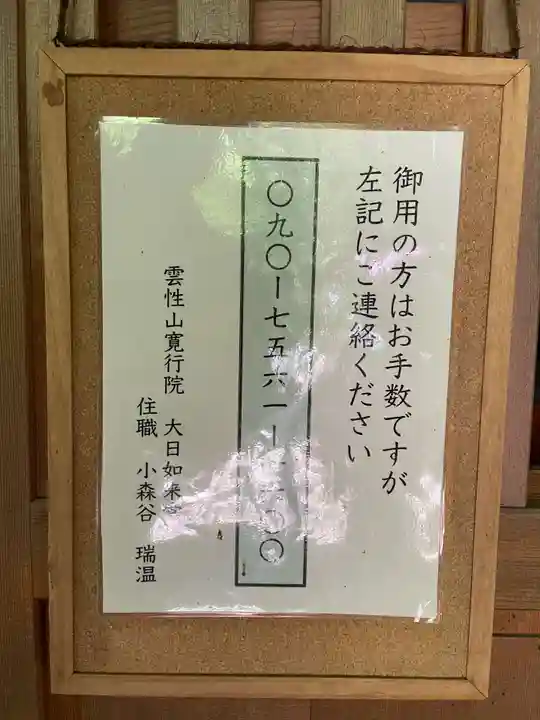 御用の方はお手数ですが
左記にご連絡ください
〇九〇ー七五六一ー 〇〇
雲性山寛行院 大日如来
住職 小森谷 瑞温